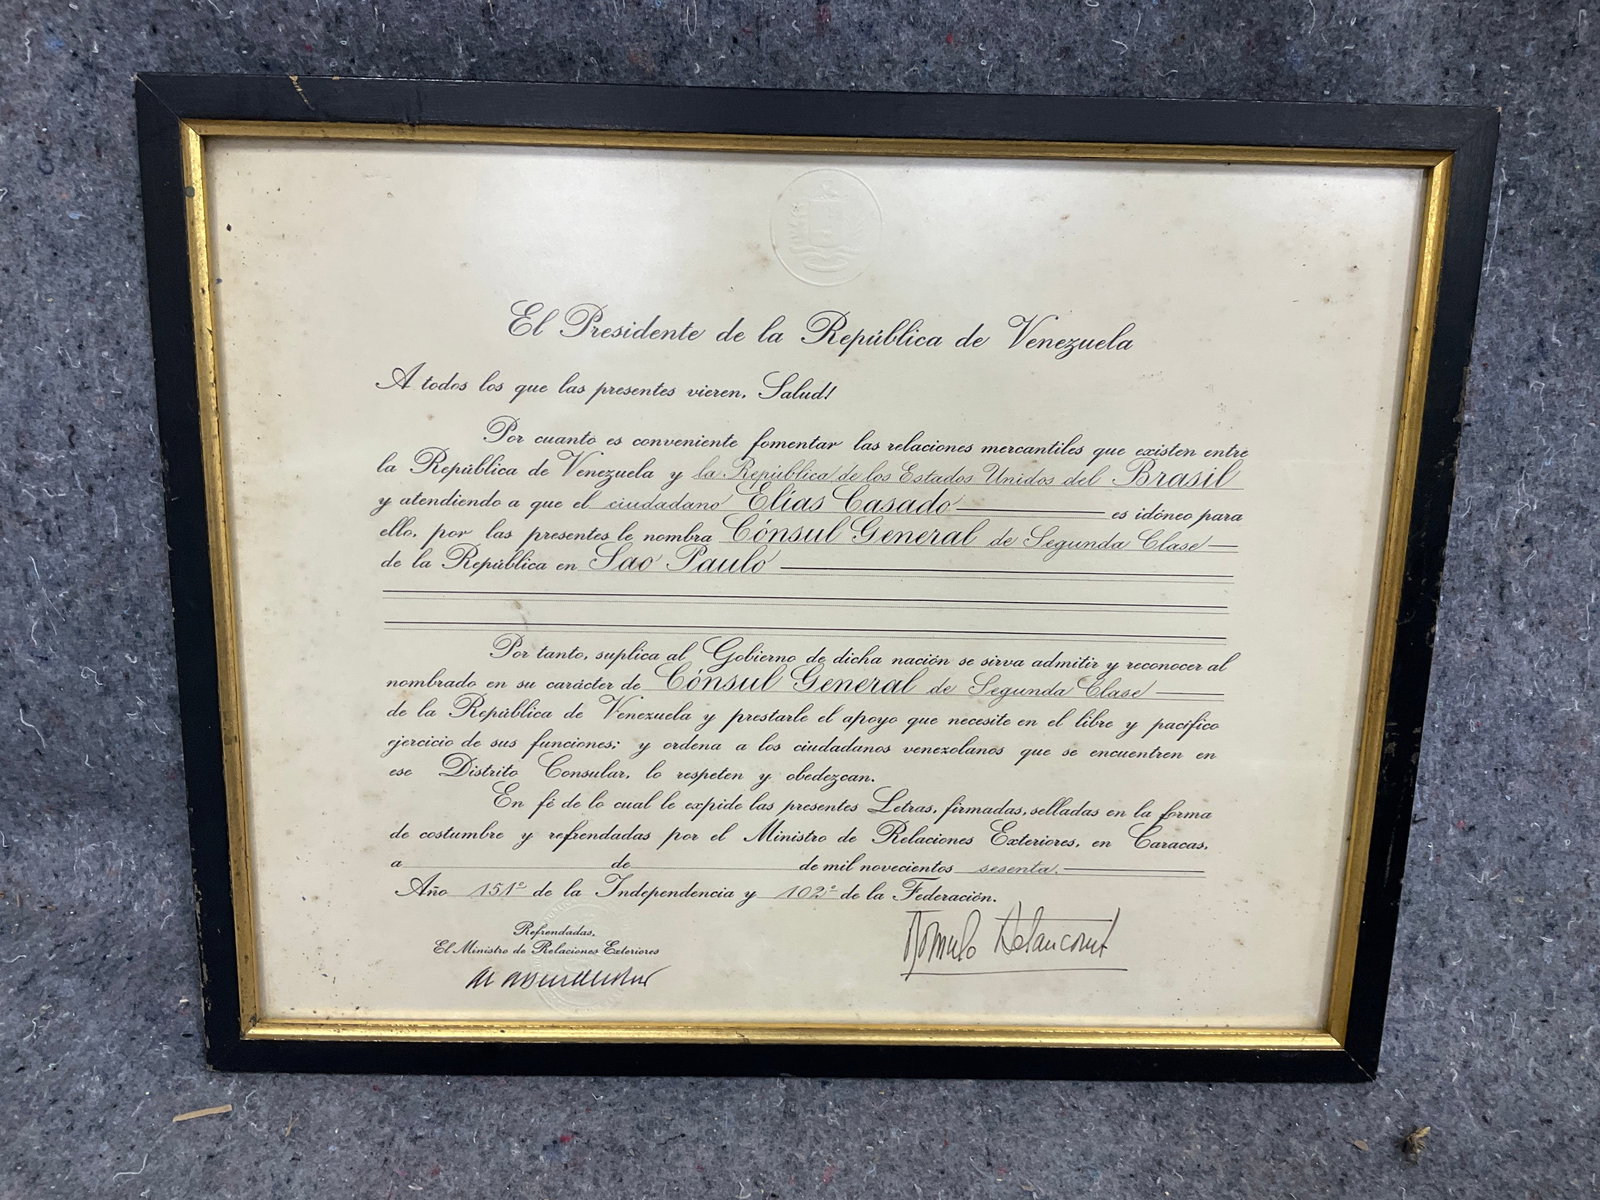 El Presidente de la República de Venezuela
A todos los que las presentes vieren, Salud!
Por cuanto es conveniente fomentar las relaciones mercantiles que existen entre
la República de Venezuela y la República de los Estados Unidos del Brasil
y atendiendo a que el ciudadano Elías Casado es idóneo para
ello, por las presentes le nombra Cónsul General de Segunda Clase
de la República en Sao Paulo
Por tanto, suplica al Gobierno de dicha nación se sirva admitir y reconocer al
nombrado en su carácter de Cónsul General de Segunda Clase
de la República de Venezuela y prestarle el apoyo que necesite en el libre y pacífico
ejercicio de sus funciones; y ordena a los ciudadanos venezolanos que se encuentren en
ese Distrito Consular, lo respeten y obedezcan.
En fé de lo cual le expide las presentes Letras, firmadas, selladas en la forma
de costumbre y refrendadas por el Ministro de Relaciones Exteriores, en Caracas,
a de de mil novecientos sesenta.
Año 151º de la Independencia y 102º de la Federación.
Refrendadas,
El Ministro de Relaciones Exteriores
Rómulo Betancourt